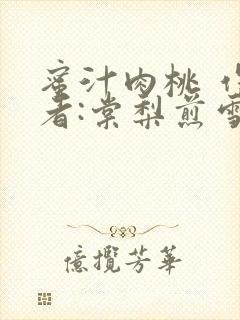 蜜汁肉桃
者:棠梨煎雪
憶攬芳華